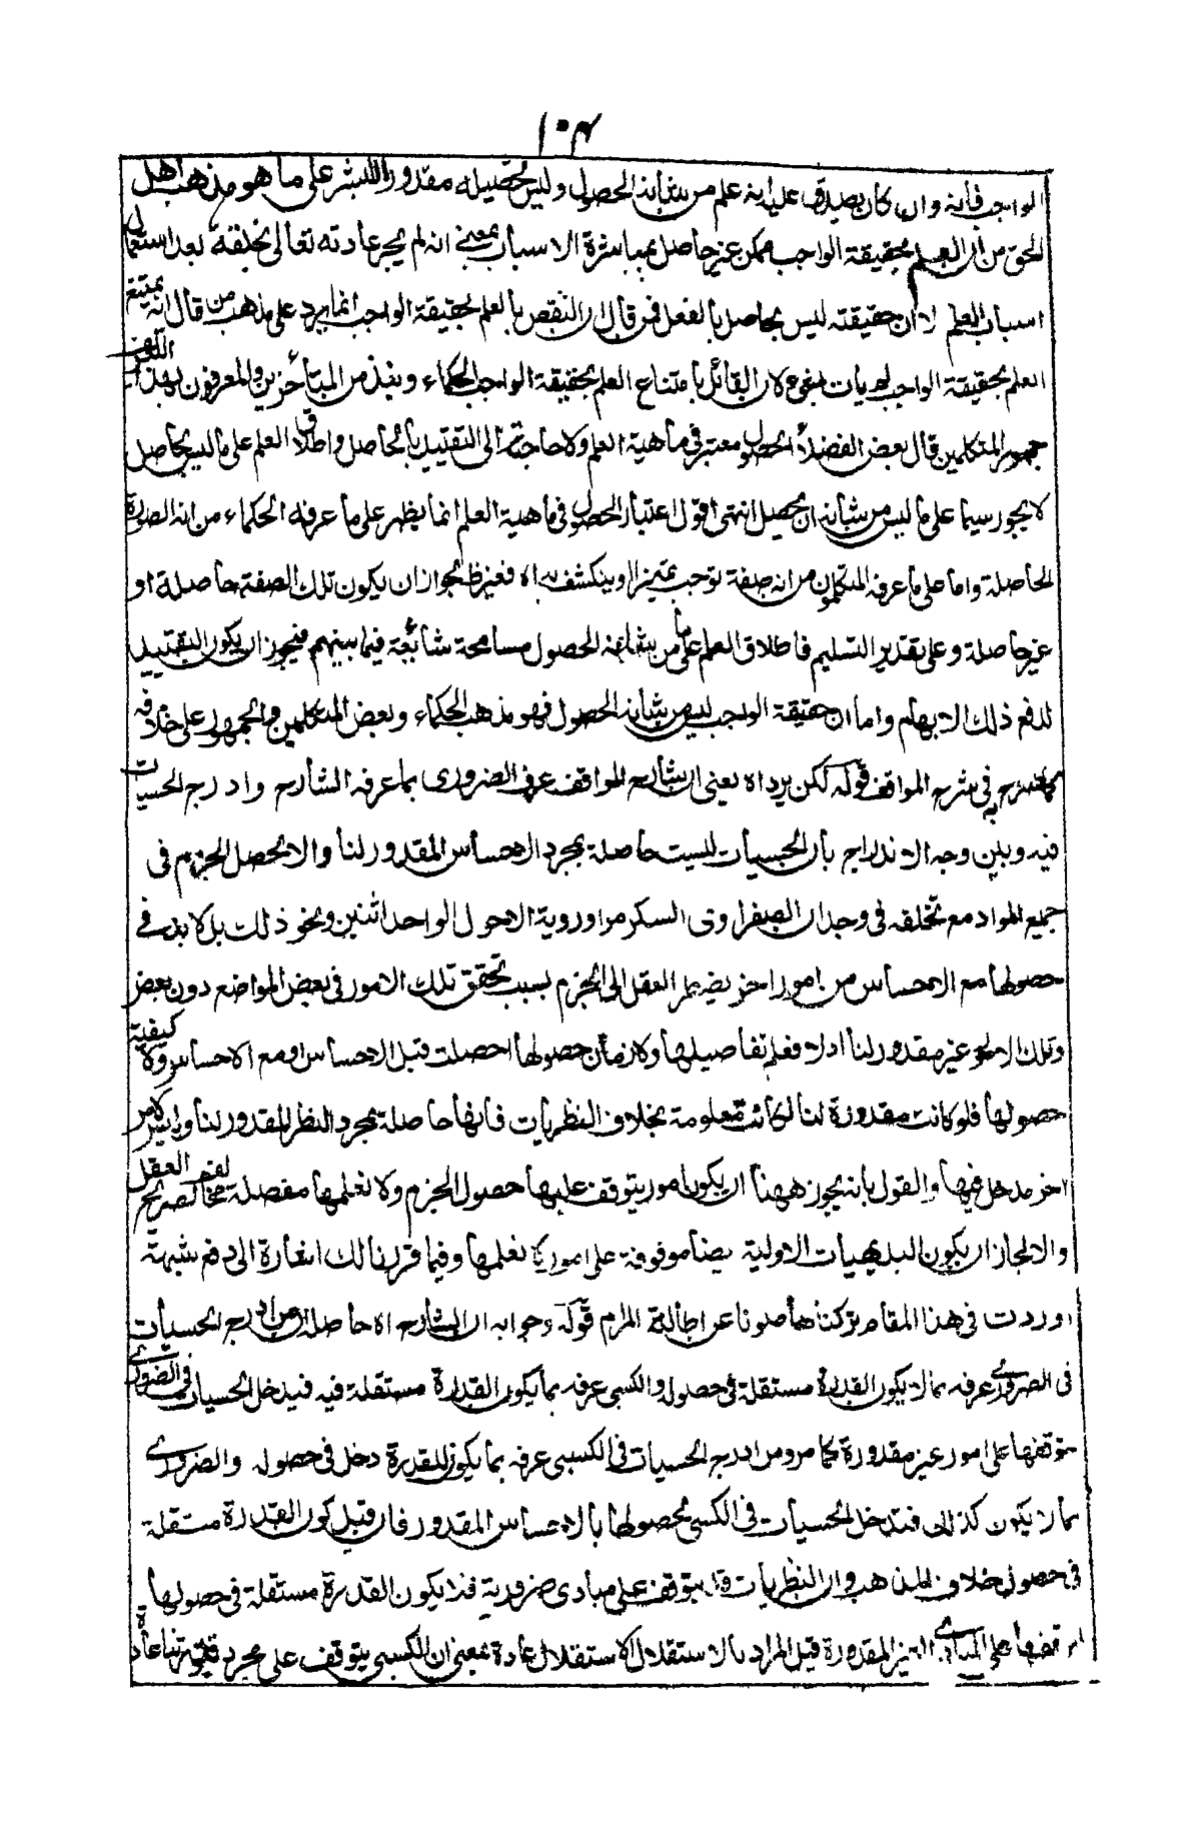 ١٠٤
الواجب فانه وان كان يصدق عليه انه علم من شانه الحصول وليس تحصيله مقدورا للبشر على ما هو مذهب اهل
الحق من ان العلم بحقيقة الواجب ممكن غير حاصل بمباشرة الاسباب بمعنى انه لم يجر عادته تعالى بخلقه بعد استعمال
اسباب العلم لا ان حقيقته ليس بحاصل بالفعل فمن قال ان النقض بالعلم بحقيقة الواجب انما يرد على مذهب من قال انه يمتنع
العلم بحقيقة الواجب لم يات بشيء لان القائل بامتناع العلم بحقيقة الواجب الحكماء ونبذ من المتأخرين والمعرفون بهذا التعريف
جمهور المتكلمين قال بعض الفضلاء الحصول معتبر في ماهية العلم ولا حاجة الى التقييد بالحاصل واطلاق العلم على ما ليس بحاصل
لا يجوز سيما على ما ليس من شانه ان يحصل انتهى اقول اعتبار الحصول في ماهية العلم انما يظهر على ما عرفه الحكماء من انه الصورة
الحاصلة واما على ما عرفه المتكلمون من انه صفة توجب تميزا او ينكشف به اه فغير ظ لجواز ان يكون تلك الصفة حاصلة او
غير حاصلة وعلى تقدير التسليم فاطلاق العلم على ما من شانه الحصول مسامحة شائعة فيما بينهم فيجوز ان يكون التقييد
لدفع ذلك الابهام واما ان حقيقة الواجب ليس من شانه الحصول فهو مذهب الحكماء وبعض المتكلمين والجمهور على خلافه
كما صرح به في شرح المواقف قوله لكن يرد اه يعنى ان شارح المواقف عرف الضرورى بما عرفه الشارح وادرج الحسيات
فيه وبين وجه الاندراج بان الحسيات ليست حاصلة بمجرد الاحساس المقدور لنا والا لحصل الجزم في
جميع المواد مع تخلفه في وجدان الصفراوى السكر مرا وروية الاحول الواحد اثنين ونحو ذلك بل لا بد في
حصولها مع الاحساس من امور اخر يضطر العقل الى الجزم بسبب تحقق تلك الامور في بعض المواضع دون بعض
وتلك الامور غير مقدور لنا اذ لا نعلم تفاصيلها ولا زمان حصولها احصلت قبل الاحساس او مع الاحساس ولا كيفية
حصولها فلو كانت مقدورة لنا لكانت معلومة بخلاف النظريات فانها حاصلة بمجرد النظر المقدور لنا وليس لامر
اخر مدخل فيها والقول بانه يجوز ههنا ان يكون امور يتوقف عليها حصول الجزم ولا نعلمها مفصلة مخالف لصريح العقل
والا لجاز ان يكون البديهيات الاولية ايضا موقوفة على امور لا نعلمها وفيما قررنا لك اشارة الى دفع شبهة
اوردت في هذا المقام تركناها صونا عن اطالة المرام قوله وجوابه ان الشارح اه حاصله ان من ادرج الحسيات
في الضرورى عرفه بما لا يكون القدرة مستقلة في حصوله والكسبى عرفه بما يكون القدرة مستقلة فيه فيدخل الحسيات في الضرورى
لتوقفها على امور غير مقدورة كما مر ومن ادرج الحسيات في الكسبى عرفه بما يكون للقدرة دخل في حصوله والضرورى
بما لا يكون كذلك فتدخل الحسيات في الكسبى لحصولها بالاحساس المقدور فان قيل كون القدرة مستقلة
في حصوله خلاف المذهب وان النظريات قد يتوقف على مبادى ضرورية فلا يكون القدرة مستقلة في حصولها
لتوقفها على المبادى الغير المقدورة قيل المراد بالاستقلال الاستقلال عادة بمعنى ان الكسبى يتوقف على مجرد قدرتنا عادة